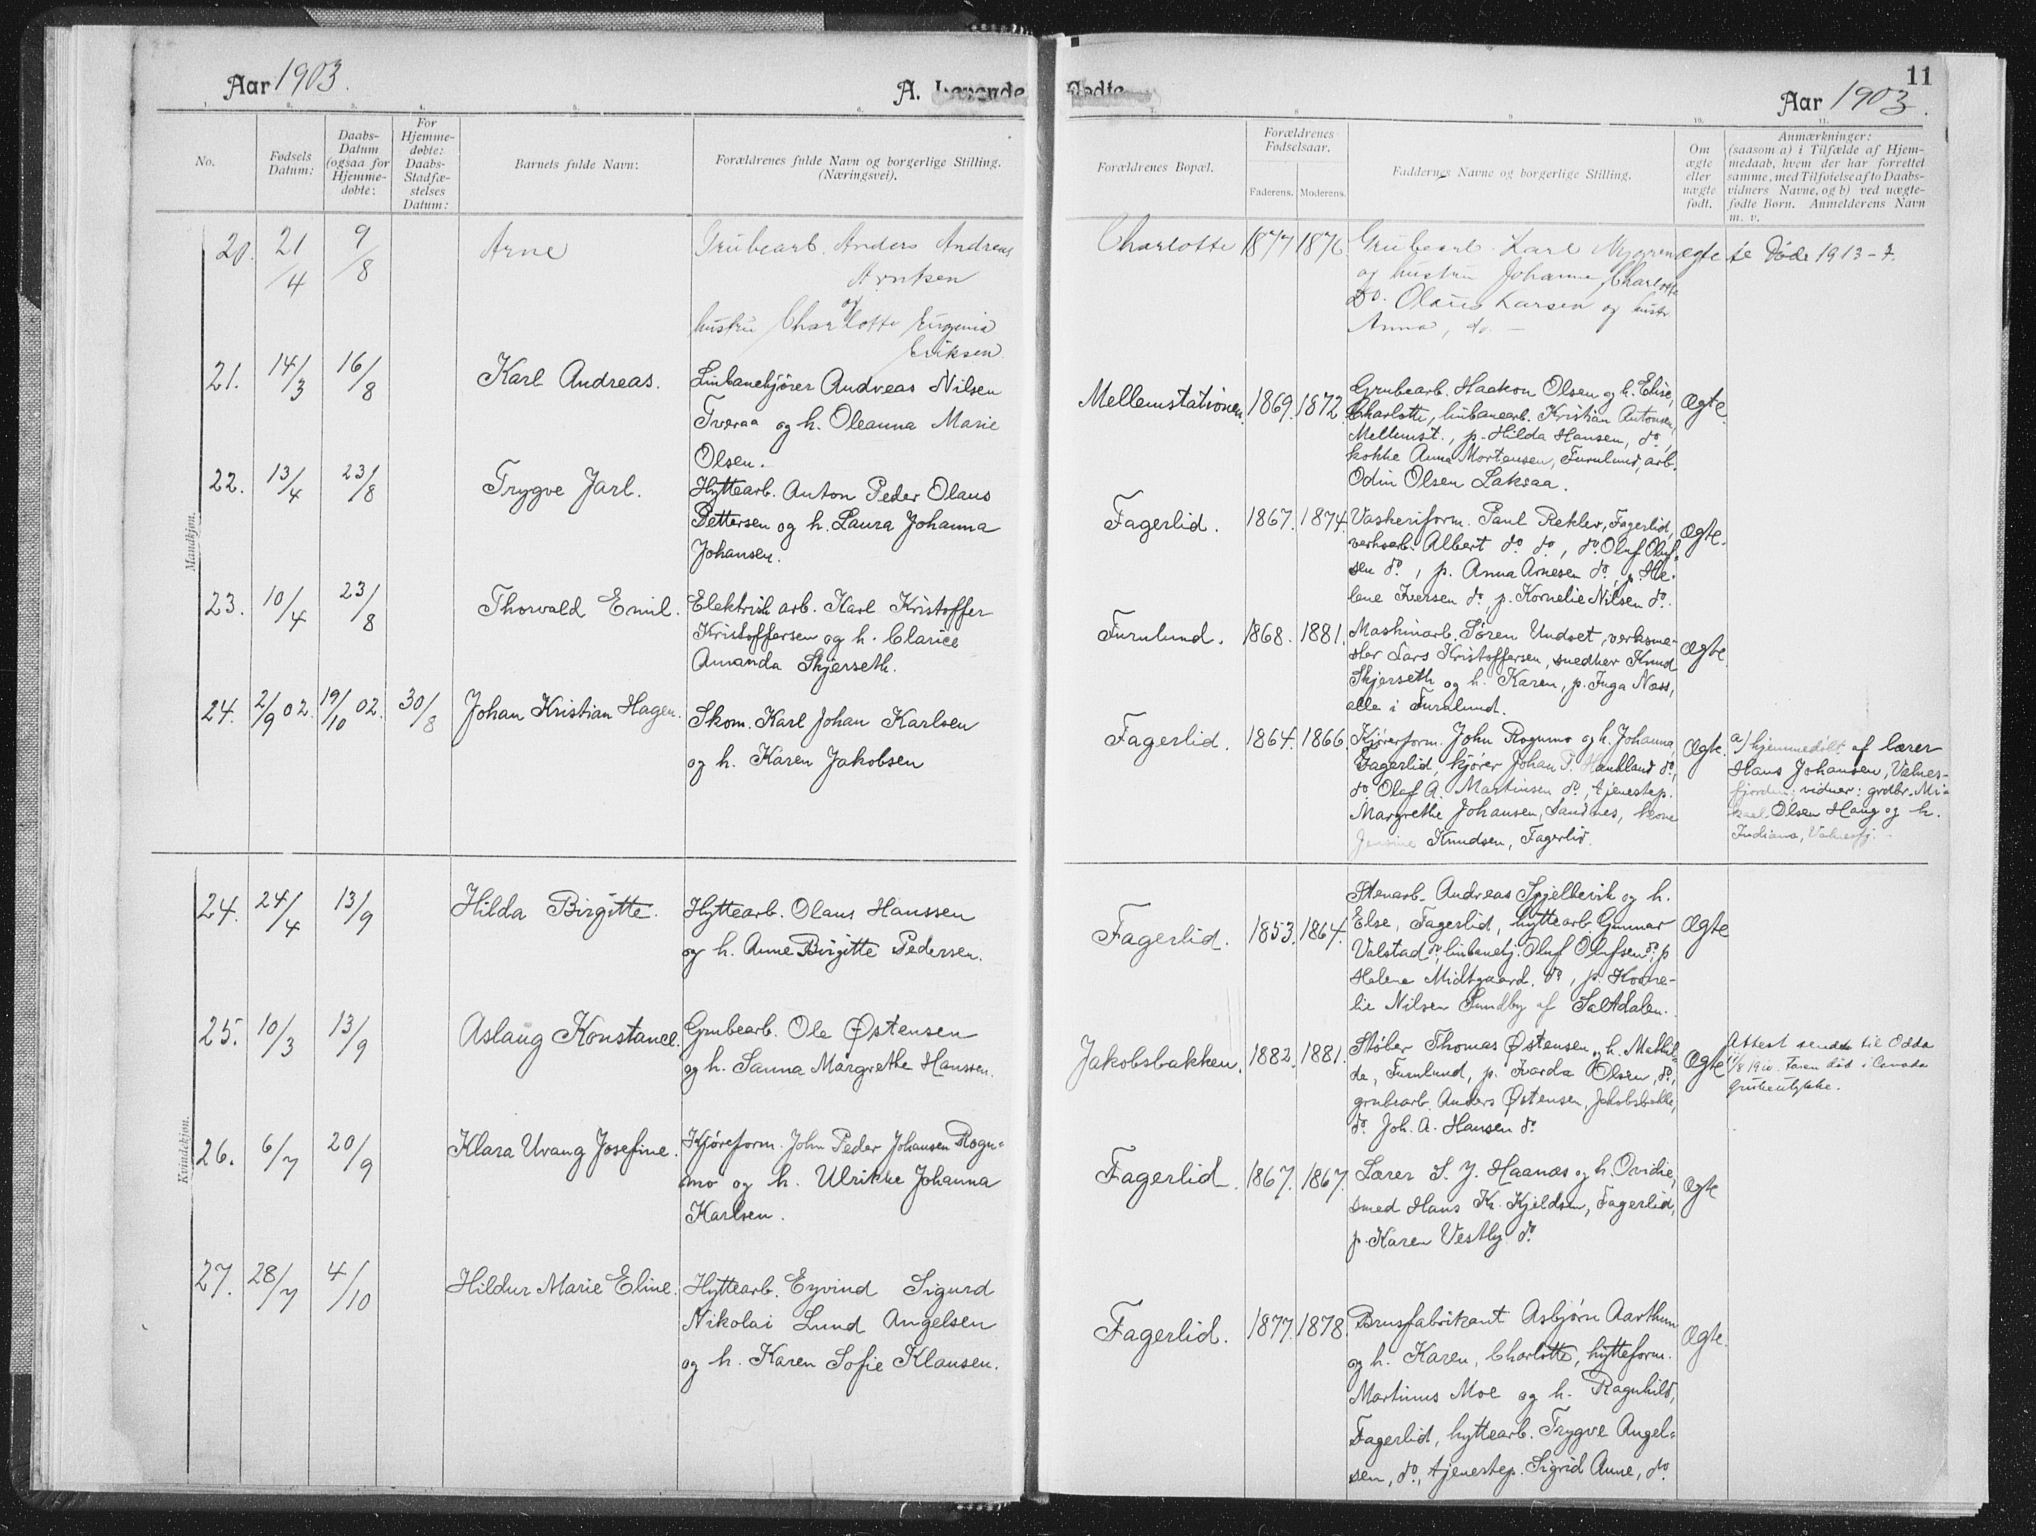 Aar 1903.
A. Levende
1. 2. 3. 4. 5. 6.
No.
Fødsels Datum:
Daabs-Datum (ogsaa for Hjemme-døbte:
For Hjemme-døbte: Daabs-Stadfæ-stelses Datum:
Barnets fulde Navn:
Forældrenes fulde Navn og borgerlige Stilling. (Næringsvei).
Mandkjøn.
20. 21/4 9/8 Arne Grubearb. Anders Andreas
Arntsen
og
hustru Charlotte Eugenia
Eriksen
21. 14/3 16/8 Karl Andreas. Linbanekjører Andreas Nilsen
Tveraa og h. Oleanna Marie
Olsen.
22. 13/4 23/8 Trygve Jarl. Hyttearb. Anton Peder Olaus
Pettersen og h. Laura Johanna
Johansen.
23. 10/4 23/8 Thorvald Emil. Elektrisk arb. Karl Kristoffer
Kristoffersen og h. Clarice
Amanda Skjerseth.
24. 2/9 02. 19/10 02. 30/8 Johan Kristian Hagen. Skom. Karl Johan Karlsen
og h. Karen Jakobsen
Kvindekjøn.
24. 24/4 13/9 Hilda Birgitte. Hyttearb. Olaus Hanssen
og h. Anne Birgitte Pedersen.
25. 10/3 13/9 Aslaug Konstance. Grubearb. Ole Østensen
og h. Sanna Margrethe Hanssen.
26. 6/7 20/9 Klara Uvang Josefine. Kjøreform. John Peder Johansen Rogn-
mo og h. Ulrikke Johanna
Karlsen.
27. 28/7 4/10 Hildur Marie Eline. Hyttearb. Eyvind Sigurd
Nikolai Lund Angelsen
og h. Karen Sofie Klausen.
Fødte
11
Aar 1903.
7. 8. 9. 10. 11.
Forældrenes Bopæl.
Forældrenes Fødselsaar.
Faderens. Moderens.
Faddernes Navne og borgerlige Stilling.
Om ægte eller uægte født.
Anmærkninger:
(saasom a) i Tilfælde af Hjem-
medaab, hvem der har forrettet
samme, med Tilføielse af to Daabs-
vidners Navne, og b) ved uægte-
fødte Børn. Anmelderens Navn
m. v.
Charlotte 1877 1876. Grubearb. Karl Nygren ægte Døde 1913-7.
og hustru Johanne, Charlotte
Do. Olaus Larsen og hustr
Anna, do. -
Mellemstationen. 1869. 1872. Grubearb. Haakon Olsen og h. Elise, Ægte.
Charlotte, linbanearb. Kristian Antonsen,
Mellemst., p. Hilda Hansen, do.
kokke Anna Mortensen, Furulund, arb.
Odin Olsen Laksaa.
Fagerlid. 1867. 1874. Vaskeriform. Paul Rekler, Fagerlid, Ægte.
verksarb. Albert do. do., do. Oluf Oluf-
sen do., p. Anna Arnesen do., p. He-
lene Iversen do., p. Kornelie Nilsen do.
Furulund. 1868. 1881. Maskinarb. Søren Undset, verksme- Ægte.
ster Lars Kristoffersen, snedker Knud
Skjerseth og h. Karen, p. Inga Næss,
alle i Furulund.
Fagerlid. 1864. 1866. Kjøreform. John Rognmo og h. Johanna, Ægte. a) hjemmedøbt af lærer
Fagerlid, kjører Johan P. Haukland do., Hans Johansen, Valnes-
do. Olaf A. Martinsen do., tjenestep. fjorden; vidner: grdbr. Mi-
Margrethe Johansen, Sandnes, kone kael Olsen Haug og h.
Jensine Knudsen, Fagerlid. Indiana, Valnesfj.
Fagerlid. 1853. 1864. Stenarb. Andreas Spjelkevik og h. Ægte
Else, Fagerlid, hyttearb. Gunnar
Valstad do., linbanekj. Oluf Olufsen do., p.
Helene Midtgaard, do., p. Korne-
lie Nilsen Sundby af Saltdalen.
Jakobsbakken. 1882. 1881. Støber Thomas Østensen og h. Mathil- Ægte Attest sendt til Odda
de, Furulund, p. Olsen, do., 1910. Faren død i Canada
grubearb. Anders Østensen, Jakobsbakke, Grubeulykke.
do. Joh. A. Hansen do.
Fagerlid. 1867. 1867. Lærer S. J. Haanæs og h. Ovidie, Ægte
smed Hans Kr. Kjeldsen, Fagerlid,
p. Karen Vestby do.
Fagerlid. 1877. 1878. Brusfabrikant Asbjørn Aarthun Ægte.
og h. Karen, Charlotte, hytteform.
Martinus Moe og h. Ragnhild,
Fagerlid, hyttearb. Trygve Angel-
sen, do., tjenestep. Sigrid Anne, do.